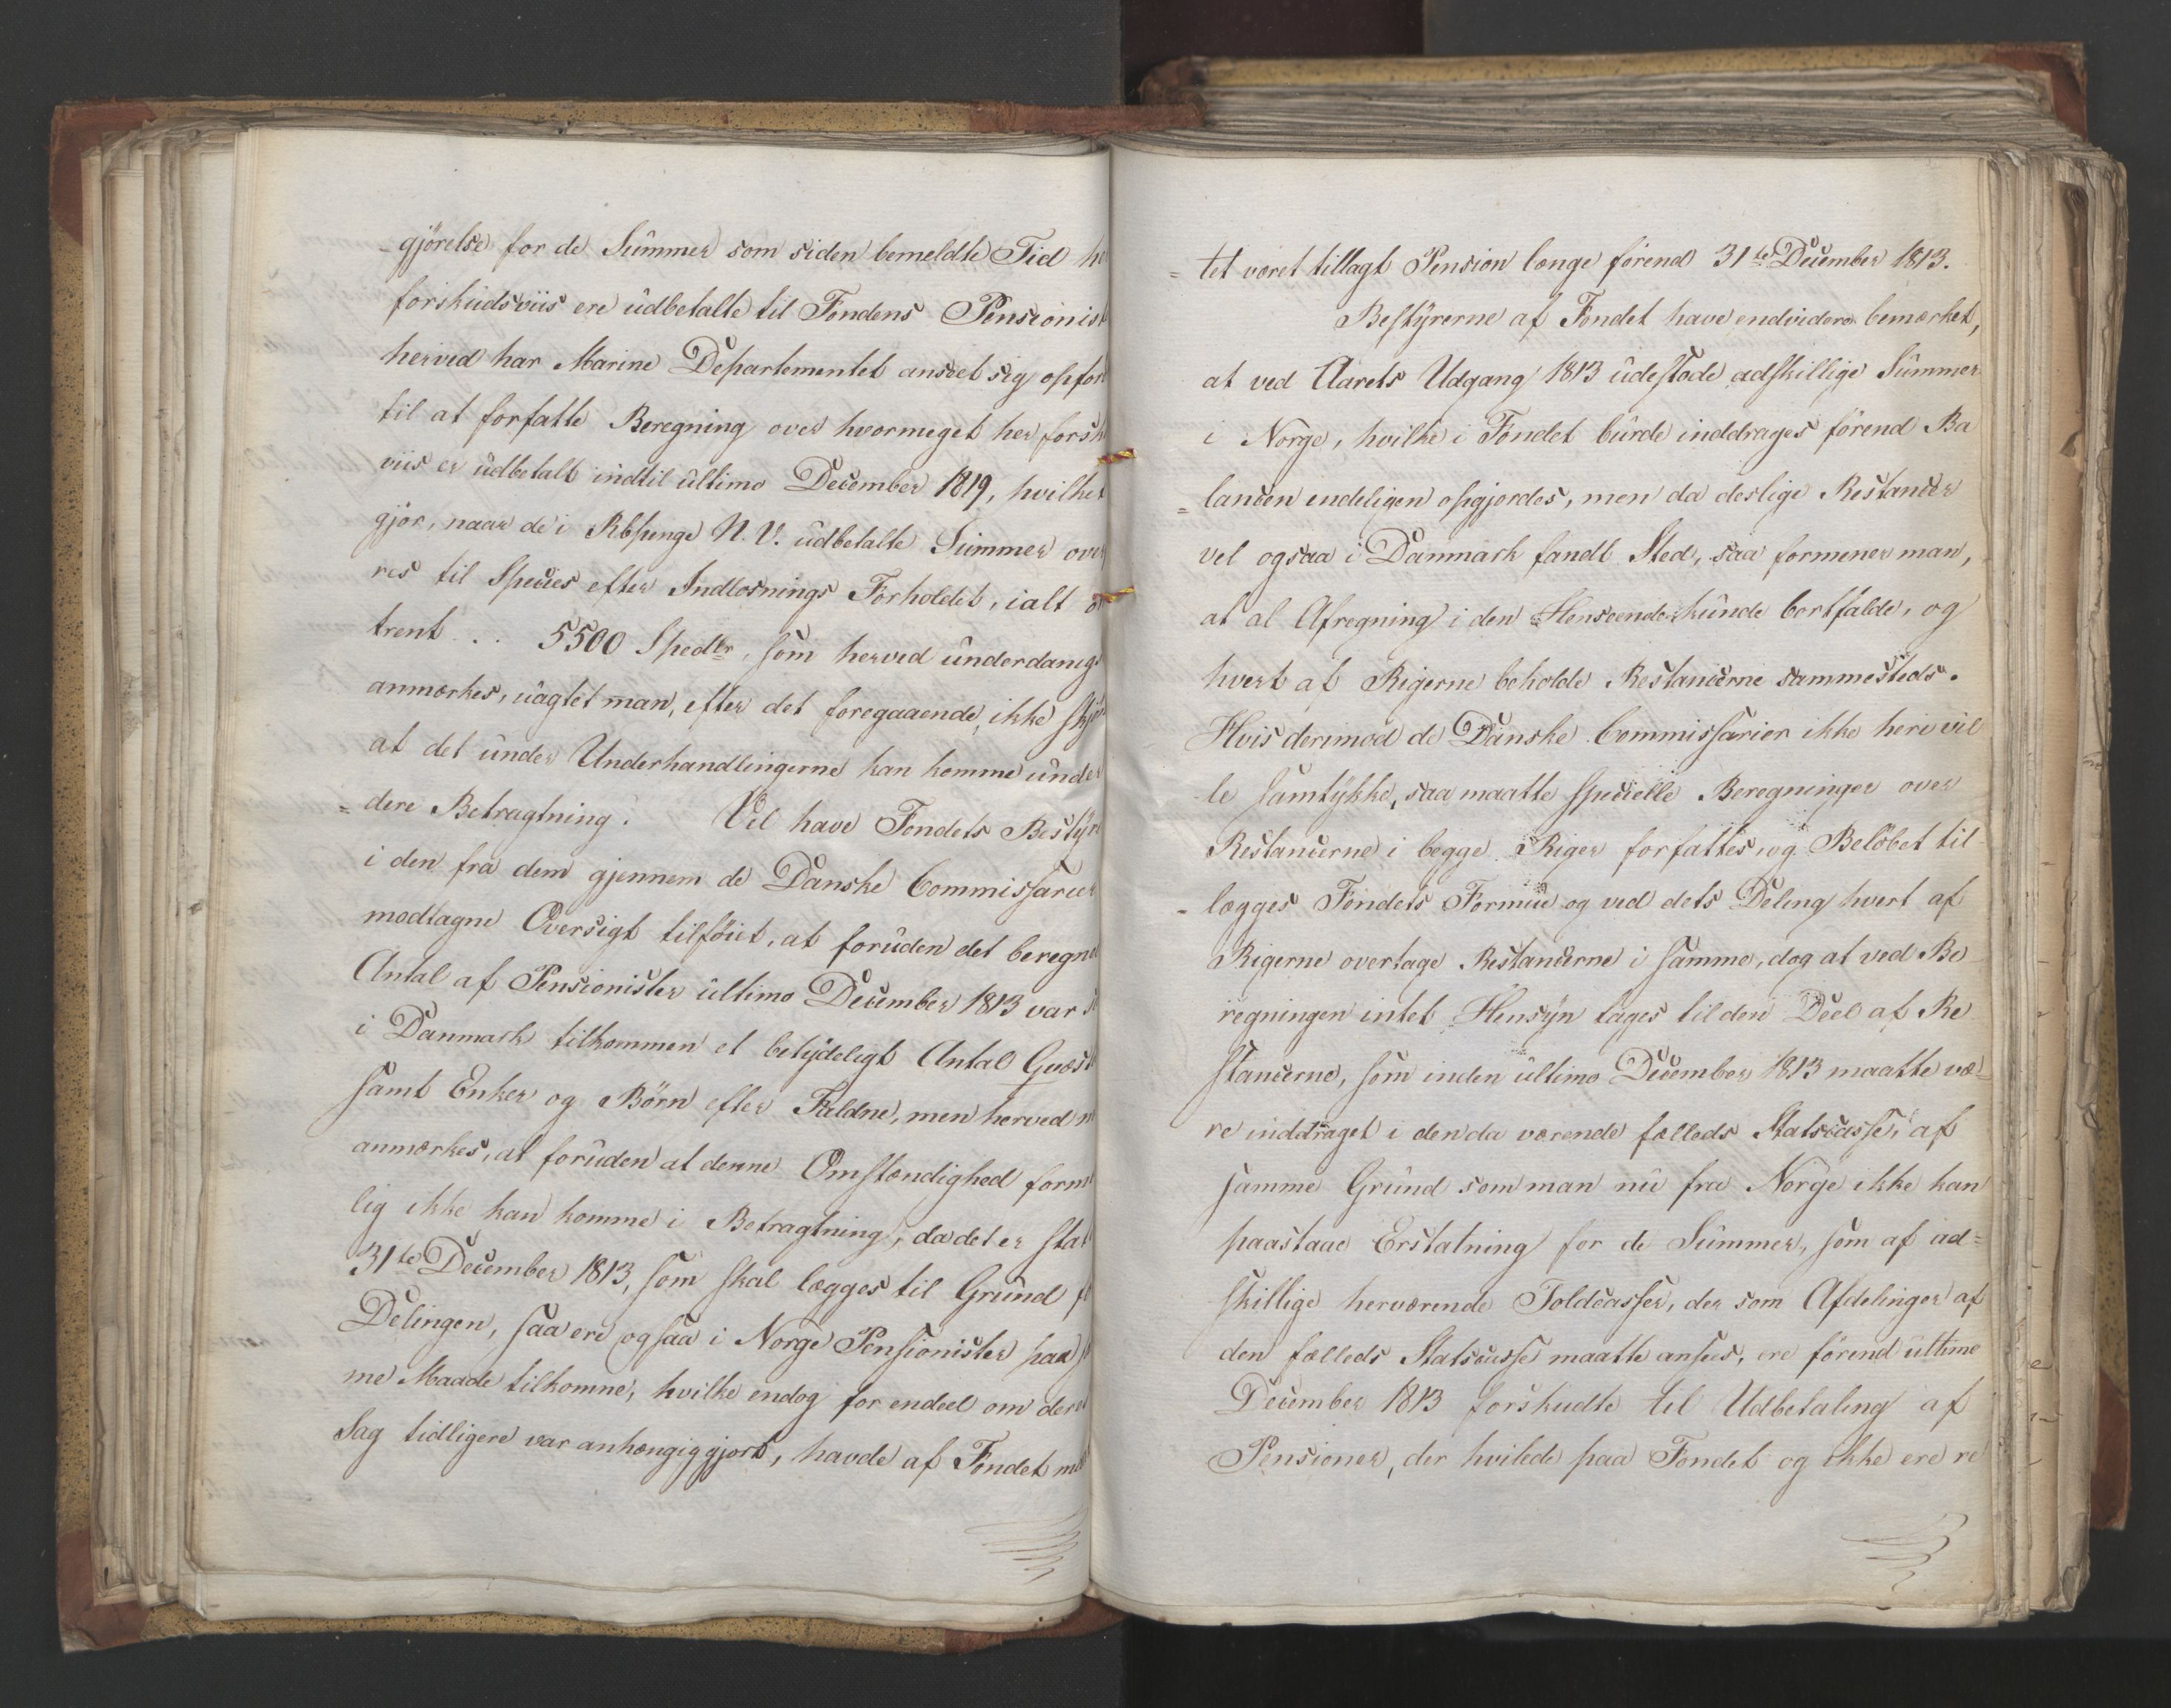 -gjörelse for de Summer som siden bemeldte Tid
forskudsviis ere udbetalte til Fondens Pensionist
herved har Marine Departementet anseet sig opfor
til at forfatte Beregning over hvormeget her forsk
viis er udbetalt indtil ultimo December 1819, hvilket
gjör, naar de i Rbpenge N. V. udbetalte Summer ove
res til Species efter Indlosnings Forholdet, ialt
trent .. 5500 Spedlr, som herved underdanigs
anmærkes, uagtet man, efter det foregaaende, ikke skjö
at det under Underhandlingerne kan komme unde
= dere Betragtning. Vel have Fondets Bestyre
i den fra dem gjennem de Danske Commissarier
modtagne Oversigt tilföiet, at foruden det beregne
Antal af Pensionister ultimo December 1813 var
i Danmark tilkommen et betydeligt Antal Qvæst
samt Enker og Börn efter Faldne, men herved
anmærkes, at foruden at denne Omstændighed form
lig ikke kan komme i Betragtning, da det er Stat
31te December 1813, som skal lægges til Grund
Delingen, saa ere ogsaa i Norge Pensionister paa
me Maade tilkomne, hvilke endog for endeel om deres
Sag tidligere var anhængiggjort, havde af Fondet
= tet været tillagt Pension længe förend 31te December 1813.
Bestyrerne af Fondet have endvidere bemærket,
at ved Aarets Udgang 1813 udestode adskillige Summer
i Norge, hvilke i Fondet burde inddrages förend Ba
= lancen endeligen opgjordes, men da deslige Restancer
vel ogsaa i Danmark fandt Sted, saa formener man,
at al Afregning i den Henseende kunde bortfalde, og
hvert af Rigerne beholde Restancerne sammesteds.
Hvis derimod de Danske Commissarier ikke heri vil
le samtykke, saa maatte specielle Beregninger over
Restancerne i begge Riger forfattes, og Belöbet til-
- lægges Fondets Formue og ved dets Deling hvert af
Rigerne overtage Restancerne i samme, dog at ved Be
regningen intet Hensyn tages til den Deel af Re
stancerne, som inden ultimo December 1813 maatte væ-
re inddraget i den da værende fælleds Statscasse, af
samme Grund som man nu fra Norge ikke kan
paastaae Erstatning for de Summer, som af ad=
skillige herværende Toldcasser, der som Afdelinger af
den fælleds Statscasse maatte ansees, ere förend ultimo
December 1813 forskudte til Udbetaling af
Pensioner, der hvilede paa Fondet og ikke ere re